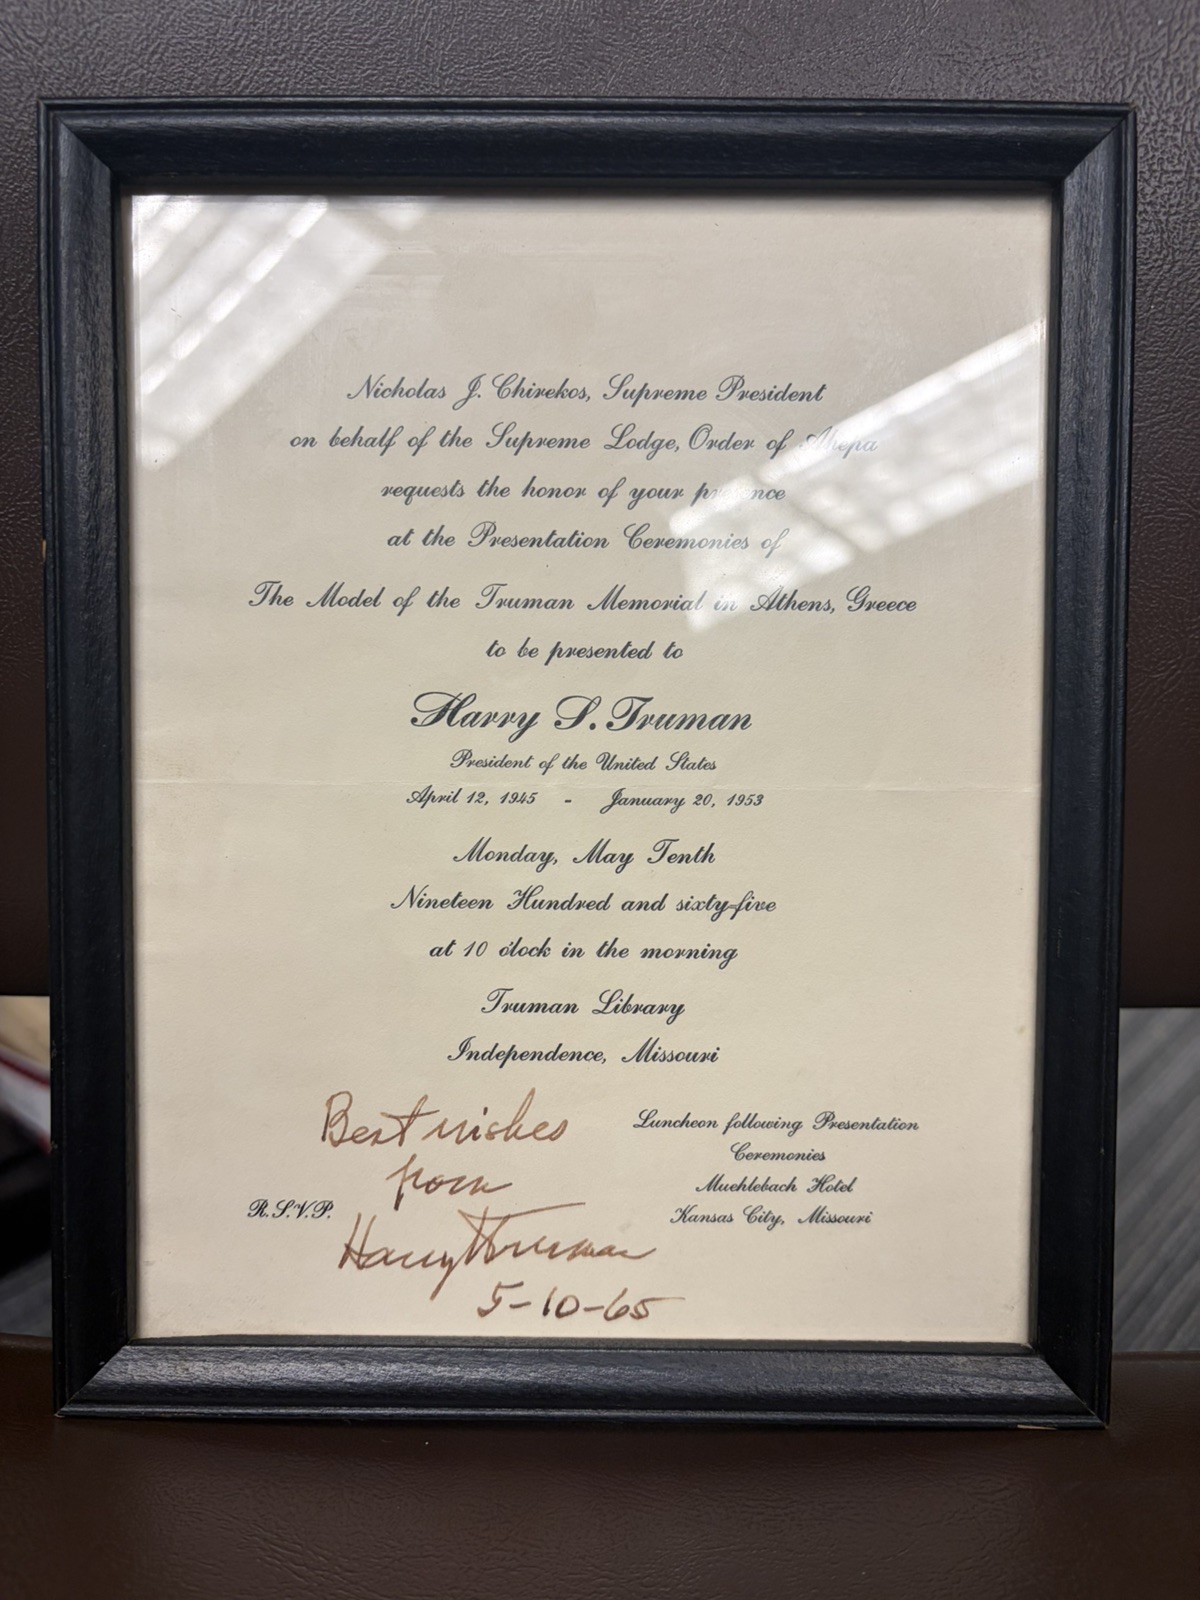 Nicholas J. Chirekos, Supreme President
on behalf of the Supreme Lodge, Order of Ahepa
requests the honor of your presence
at the Presentation Ceremonies of
The Model of the Truman Memorial in Athens, Greece
to be presented to
Harry S. Truman
President of the United States
April 12, 1945 - January 20, 1953
Monday, May Tenth
Nineteen Hundred and sixty-five
at 10 o'clock in the morning
Truman Library
Independence, Missouri
Best wishes
from
Harry Truman
5-10-65
R.S.V.P.
Luncheon following Presentation
Ceremonies
Muehlebach Hotel
Kansas City, Missouri